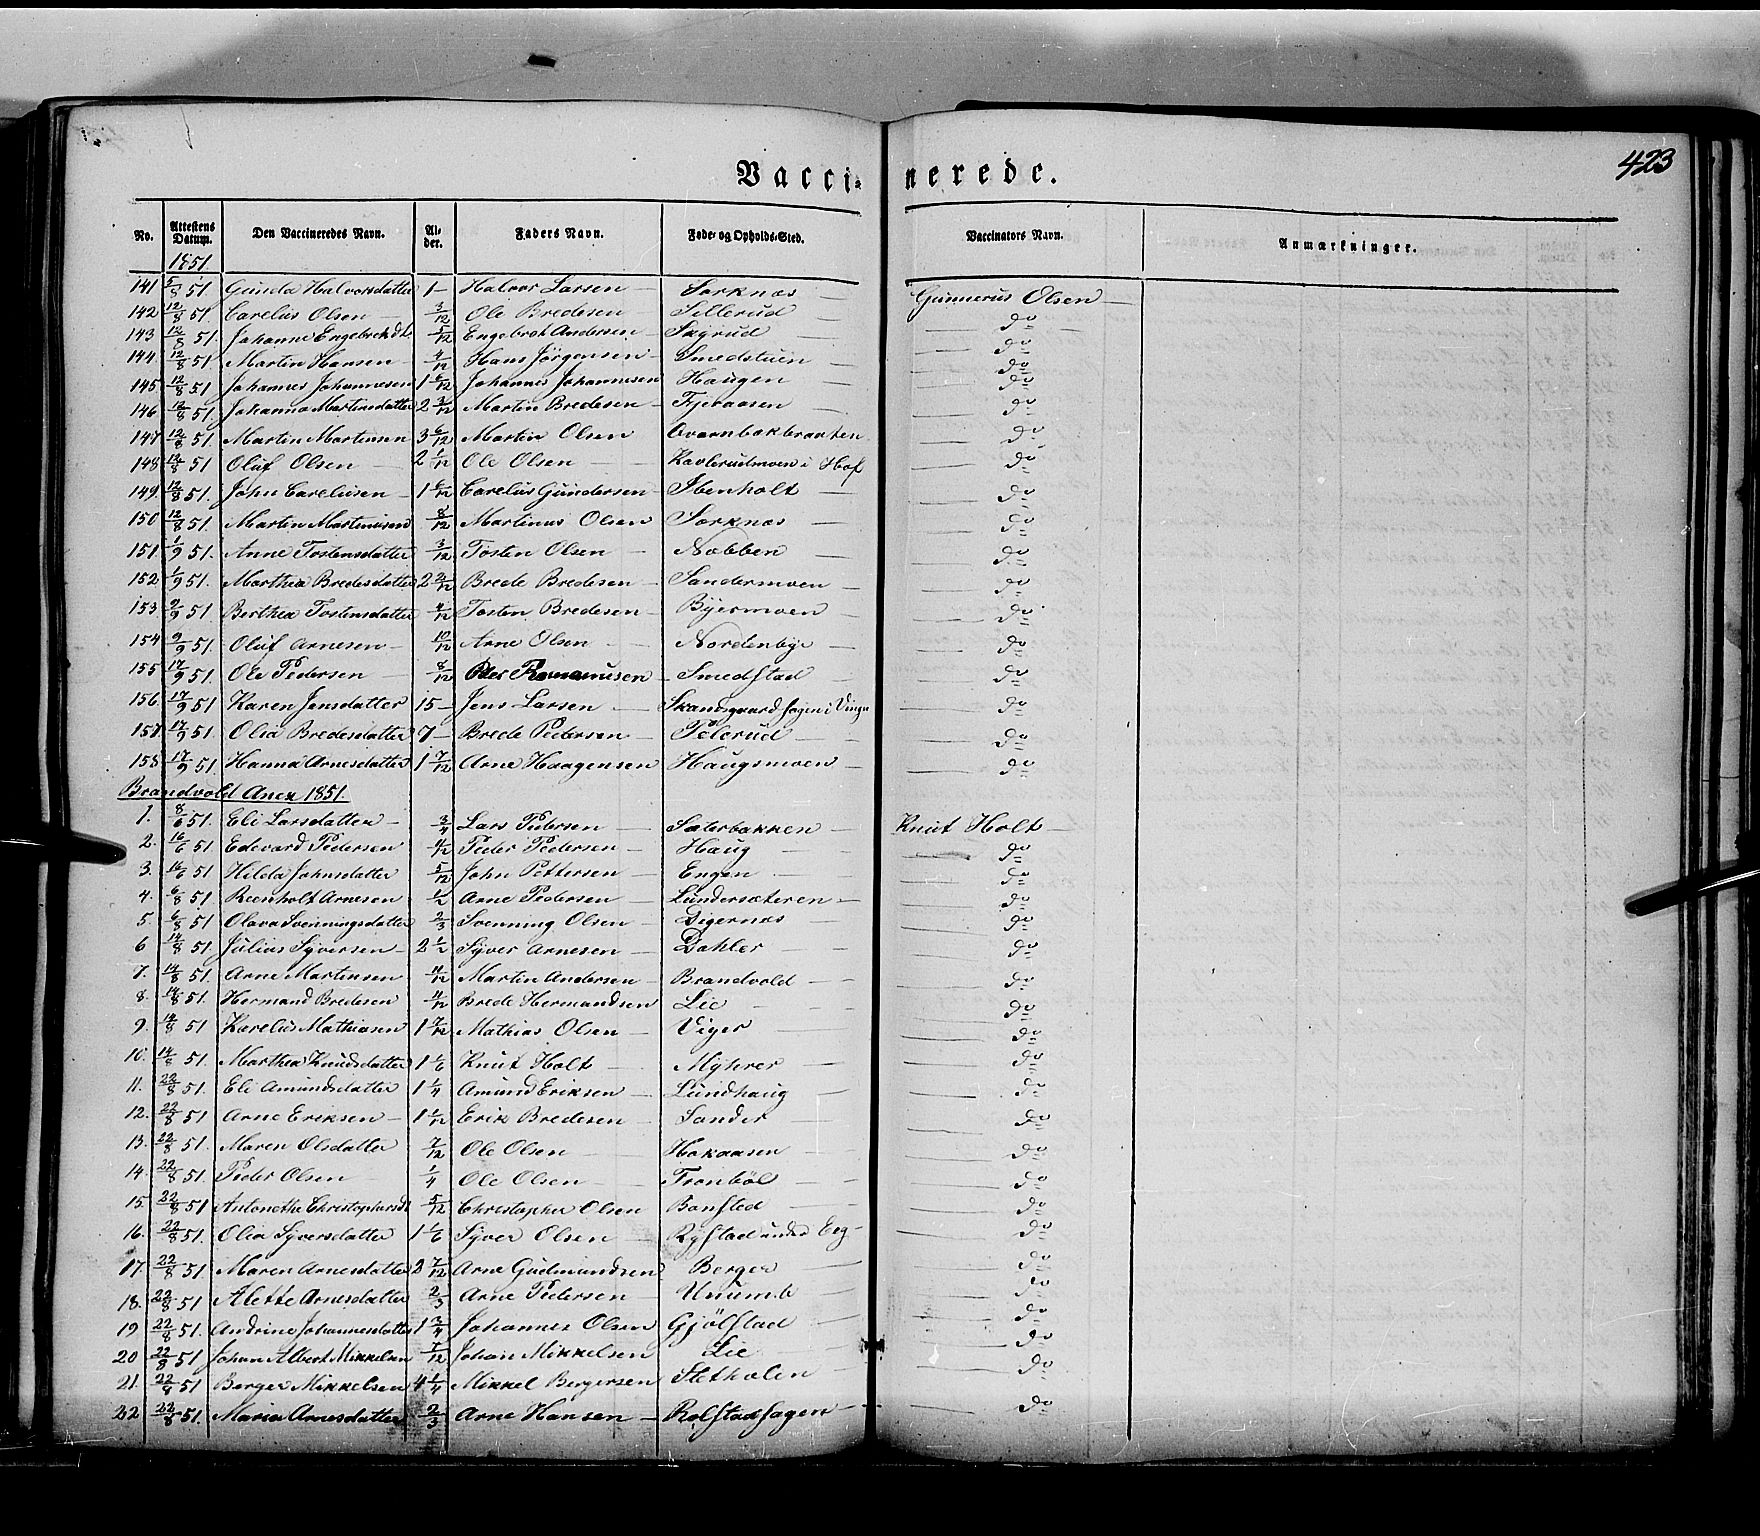 423
Vaccinerede.
No. Attestens Datum. Den Vaccineredes Navn. Alder. Faders Navn. Føde- og Opholds-Sted. Vaccinators Navn. Anmærkninger.
1851
141 5/8 51 Gunda Halvorsdatter 1 – Halvor Larsen – Sorknæs – Gunnerus Olsen –
142 12/8 51 Carelius Olsen – 3/12 Ole Bredesen Sillerud – do
143 12/8 51. Johanne Engebrektdt. 5/12 Engebret Andersen Skyrud – do
144 12/8 51 Martin Hansen – 4/12 Hans Jørgensen – Smedstuen do
145 12/8 51 Johannes Johannesen 1 6/12 Johannes Johannesen Haugen – do
146 12/8 51. Johanna Martinsdatter 2 3/12 Martin Bredesen – Fjeraasen – do
147 12/8 51. Martin Martinsen 3 6/12 Martin Olsen Qværnbækbraaten – do
148 12/8 51 Oluf Olsen – 2 1/12 Ole Olsen – Kavlerudmoen i Hof – do
149. 12/8 51. John Careliusen – 1 6/12 Carelius Gundersen – Ibenholt – do
150 12/8 51. Martin Martinusen 8/12 Martinus Olsen Sorknæs – do
151. 1/9 51. Anne Tostensdatter 3/12 Tosten Olsen – Nabben – do
152 1/9 51. Marthea Bredesdatter 2 2/12 Brede Bredesen – Sandermoen – do
153 9/9 51 Berthea Tostensdatter 4/12 Tosten Bredesen – Byermoen – do
154 9/9 51. Oluf Arnesen – 10/12 Arne Olsen – Nordenbye – do
155 17/9 51. Ole Pedersen – 8/12 Peder – Smedstad – do
156. 17/9 51 Karen Jensdatter 15 – Jens Larsen – Skandsgaardshagen i Vinger – do
157 17/9 51. Olia Bredesdatter 7 – Brede Pedersen – Pelerud – do
158 17/9 51 Hanna Arnesdatter 1 7/12 Arne Haagensen Haugsmoen – do
Brandvold Anex 1851.
1. 8/6 51. Eli Larsdatter – 3/4 Lars Pedersen – Sæterbakken – Knut Holt –
2. 16/6 51 Edevard Pedersen 4/12 Peder Pedersen – Haug – do
3. 16/6 51 Hilda Johnsdatter 5/12 John Pettersen – Engen – do
4. 6/8 51 Reenholt Arnesen 1/2 Arne Pedersen – Lundersæteren – do
5. 6/8 51 Olava Svenningsdatter 2/3 Svenning Olsen – Digernæs – do
6 14/8 51. Julius Syversen – 2 1/2 Syver Arnesen – Dahler – do
7. 14/8 51. Arne Martinsen 4/12 Martin Andersen – Brandvold – do
8. 14/8 51. Hermand Bredesen 4/12 Brede Hermandsen Lie – do
9. 14/8 51 Karelius Mathiasen 1 7/12 Mathias Olsen – Viger – do
10. 14/8 51. Marthea Knudsdatter 1 1/6 Knut Holt – Myhrer – do
11. 22/8 51. Eli Amundsdatter 1 1/4 Amund Eriksen – Lundhaug – do
12. 22/8 51 Arne Eriksen – 1 1/12 Erik Bredesen – Sander – do
13. 22/8 51. Maren Olsdatter 7/12 Ole Olsen – Hokaasen – do
14. 22/8 51. Peder Olsen – 1/4 Ole Olsen – Fronbøl – do
15. 22/8 51 Antonetha Christophersdt 5/12 Christopher Olsen Bonsted – do
16. 22/8 51. Olia Syversdatter 1 1/6 Syver Olsen – Rystad under Eeg – do
17. 22/8 51 Maren Arnesdatter 2 7/12 Arne Gudmundsen Berger – do
18. 22/8 51 Alette Arnesdatter 2/3 Arne Pedersen – do
19 22/8 51. Andrine Johannesdatter 1 3/4 Johannes Olsen Gjølstad – do
20 22/8 51 Johan Albert Mikkelsen 7/12 Johan Mikkelsen Lie – do
21. 22/8 51 Berger Mikkelsen 4 1/4 Mikkel Bergersen Stetholen – do
22 22/8 51. Maria Arnesdatter 2/3 Arne Hansen – Rolstadhagen – do